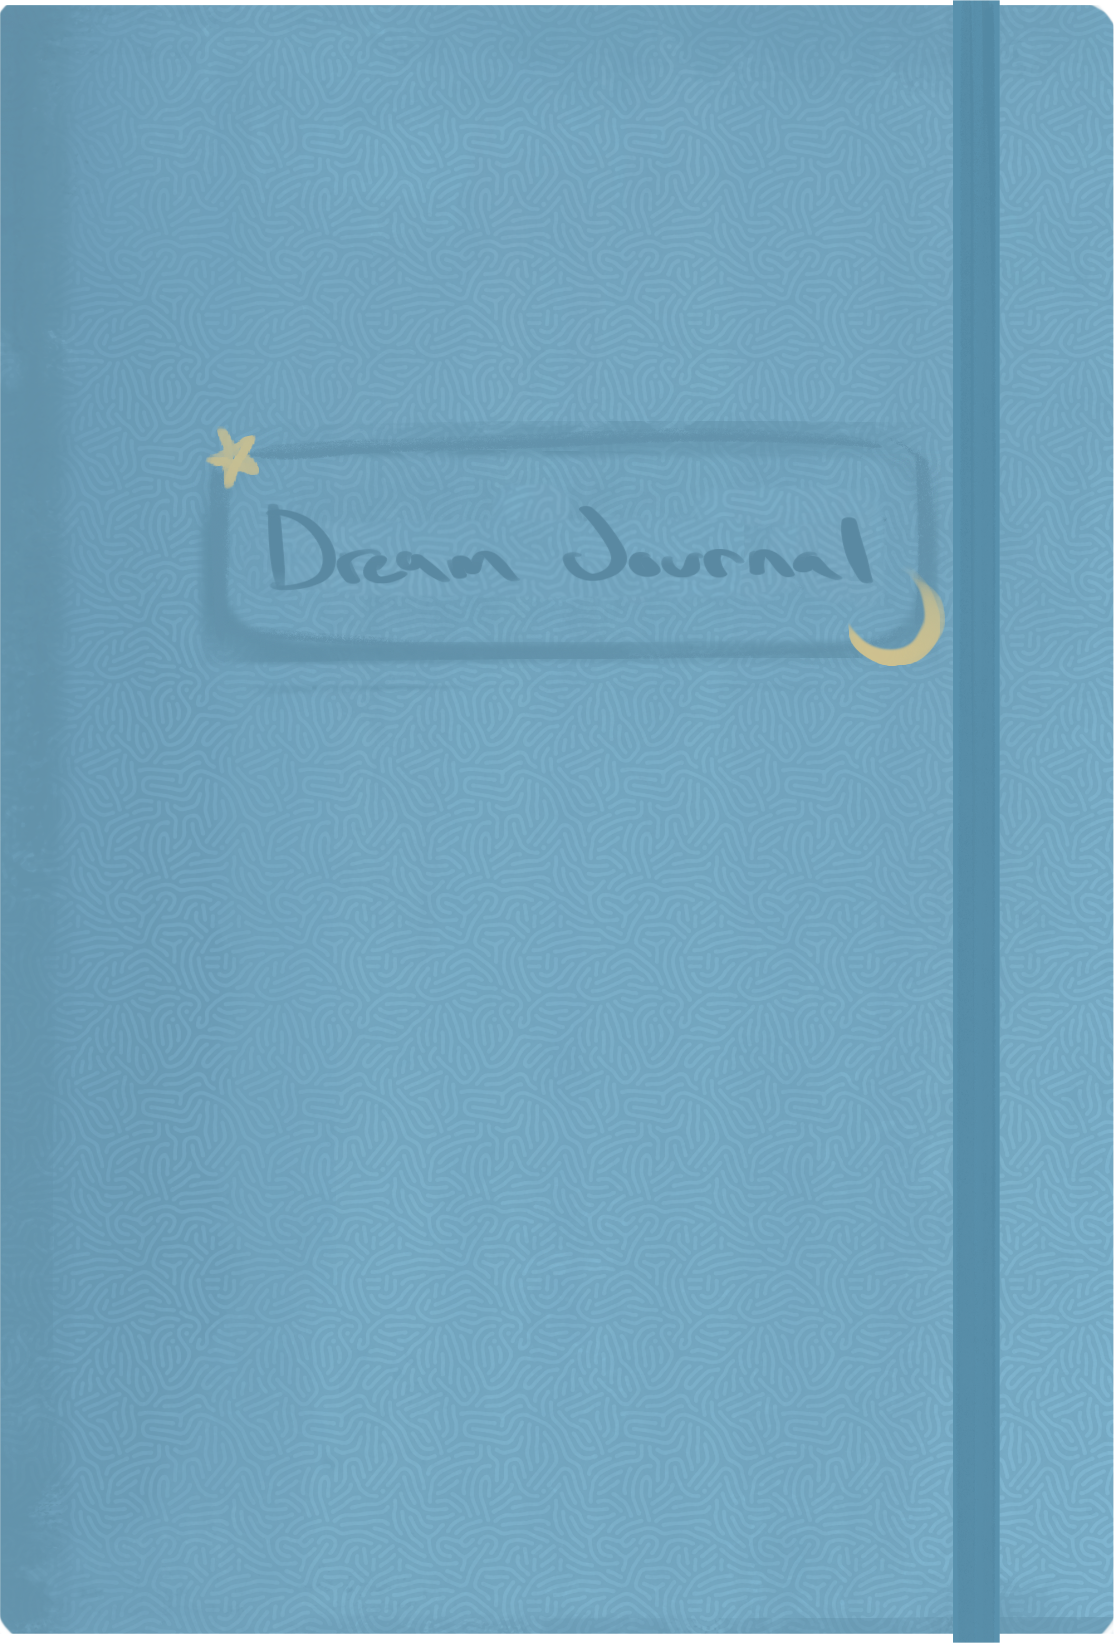 Dream Journal